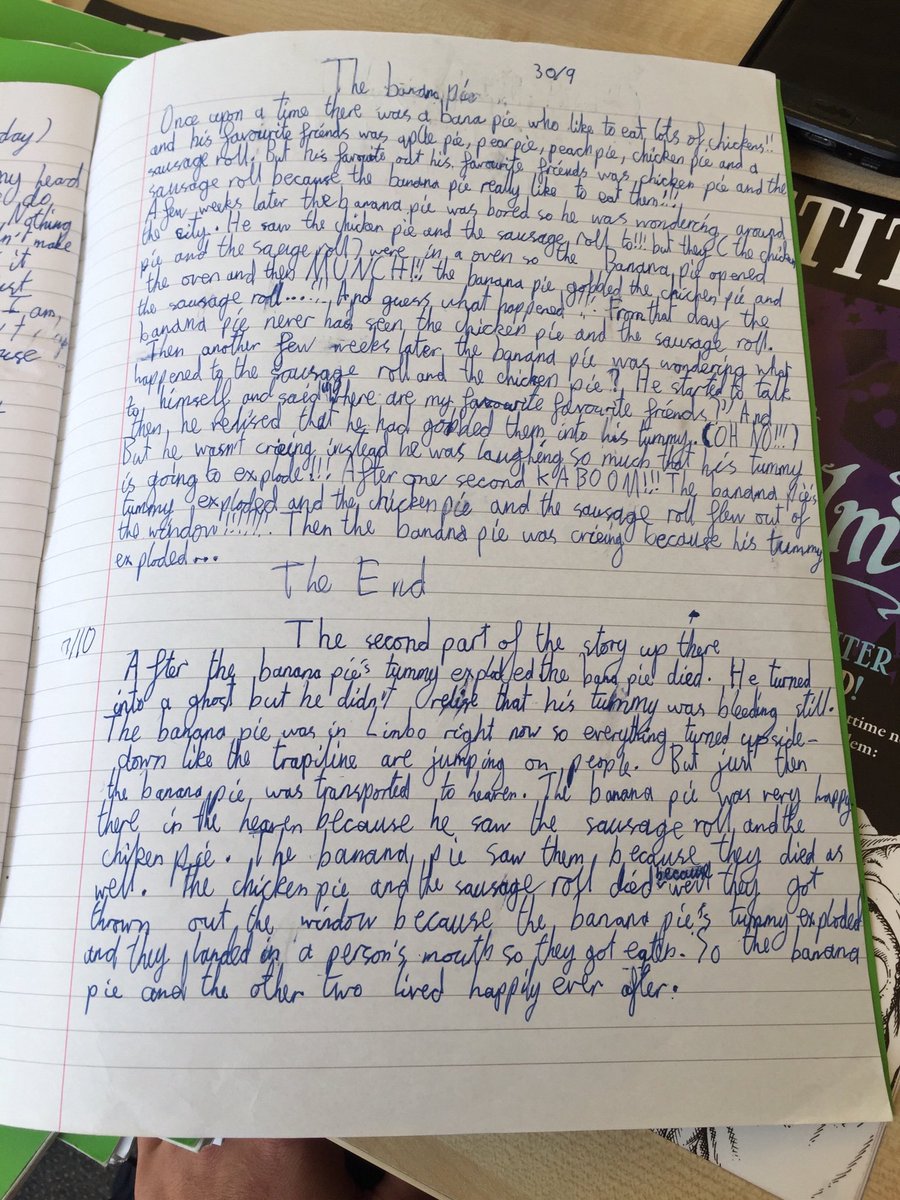 30/9
The banana pie
Once upon a time there was a bana pie, who like to eat lots of chickens!!
and his favourite friends was aplle pie, pear pie, peach pie, chicken pie and a
sausage roll. But his favouite out his favourite friends was chicken pie and the
sausage roll because the banana pie really like to eat them!!!
A few weeks later the banana pie was bored so he was wondering around
the city. He saw the chicken pie and the sausage roll to!!! but they (the chicken
pie and the saeuge roll) were in a oven so the banana pie opened
the oven and then MUNCH!!! the banana pie gobbled the chicken pie and
the sausage roll...... And guess what happened!!! From that day the
banana pie never had seen the chicken pie and the sausage roll.
Then another few weeks later the banana pie was wondering what
happened to the sausage roll and the chicken pie? He started to talk
to himself and saed "Where are my favourite favourite friends?" And
then, he relised that he had gobbled them into his tummy. (OH NO!!!)
But he wasn't crieing instead he was laughing so much that his tummy
is going to explode!!! After one second KABOOM!!! The banana pie's
tummy exploded and the chicken pie and the sausage roll flew out of
the window!!!!!!! Then the banana pie was crieing because his tummy
exploded...
The End
7/10
The second part of the story up there
After the banana pie's tummy exploded the bana pie died. He turned
into a ghost but he didn't relise that his tummy was bleeding still.
The banana pie was in Linbo right now so everything turned upside-
down like the trapiline are jumping on people. But just then
the banana pie was transported to heaven. The banana pie was very happy
there in the heaven because he saw the sausage roll and the
chiken pie. The banana pie saw them because they died as
well. The chicken pie and the sausage roll died because they got
thrown out the window because the banana pie's tummy exploded
and they landed in a person's mouth so they got eaten. So the banana
pie and the other two lived happily ever after.
day)
my heard
do,
Nothing
n't make
it
ust
I am,
ause
TIT
Am
TER
D!
ttime n
lem: